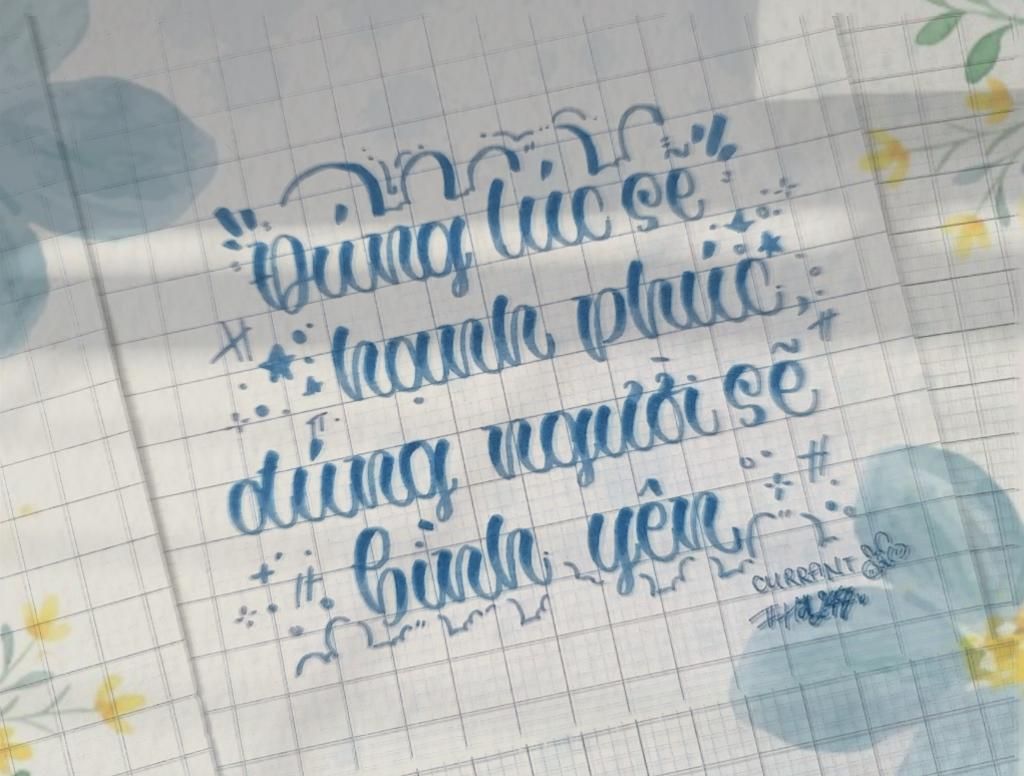 Đúng lúc sẽ
hạnh phúc,
đúng người sẽ
bình yên
CURRANT